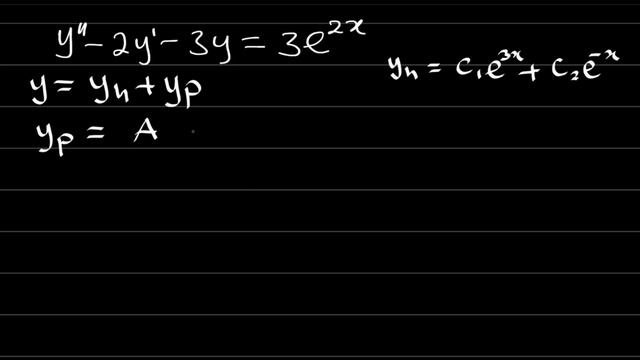 y'' - 2y' - 3y = 3e^{2x}
y_h = c_1e^{3x} + c_2e^{-x}
y = y_h + y_p
y_p = A